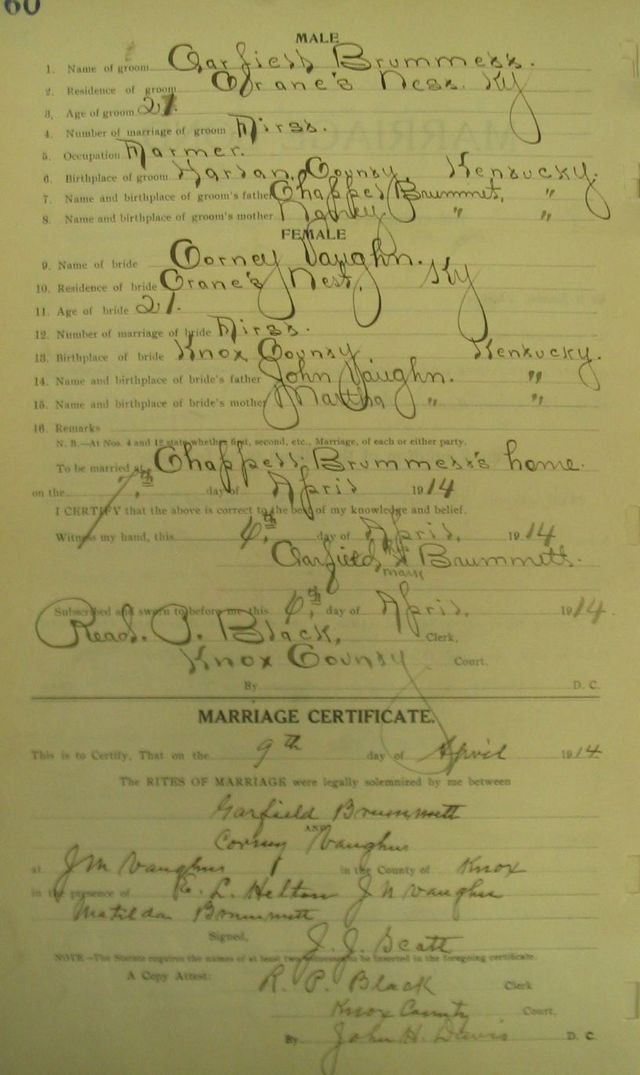 60
MALE
1. Name of groom Garfield Brummett.
2. Residence of groom Crane's Nest, Ky
3. Age of groom 21.
4. Number of marriage of groom First.
5. Occupation Farmer.
6. Birthplace of groom Harlan, County, Kentucky.
7. Name and birthplace of groom's father Chappel Brummett, "
8. Name and birthplace of groom's mother Nancy " "
FEMALE
9. Name of bride Corney Vaughn.
10. Residence of bride Crane's Nest, Ky
11. Age of bride 21.
12. Number of marriage of bride First.
13. Birthplace of bride Knox County Kentucky.
14. Name and birthplace of bride's father John Vaughn. "
15. Name and birthplace of bride's mother Martha " "
16. Remarks
N. B.—At Nos. 4 and 12 state whether first, second, etc., Marriage, of each or either party.
To be married at Chappell Brummett's home.
on the 7th day of April 1914
I CERTIFY that the above is correct to the best of my knowledge and belief.
Witness my hand, this 6th day of April, 1914
Garfield his X Brummett.
mark
Subscribed and sworn to before me this 6th day of April, 1914.
Read. P. Black, Clerk,
Knox County Court.
By D. C.
MARRIAGE CERTIFICATE.
This is to Certify, That on the 9th day of April 1914
The RITES OF MARRIAGE were legally solemnized by me between
Garfield Brummett
AND
Corney Vaughn
at J M Vaughns in the County of Knox
in the presence of E. L. Helton J N Vaughn
Matilda Brummett
Signed, J. J. Scott
NOTE—The Statute requires the names of at least two witnesses to be inserted in the foregoing certificate.
A Copy Attest: R. P. Black Clerk
Knox County Court,
By John H. Davis D. C.